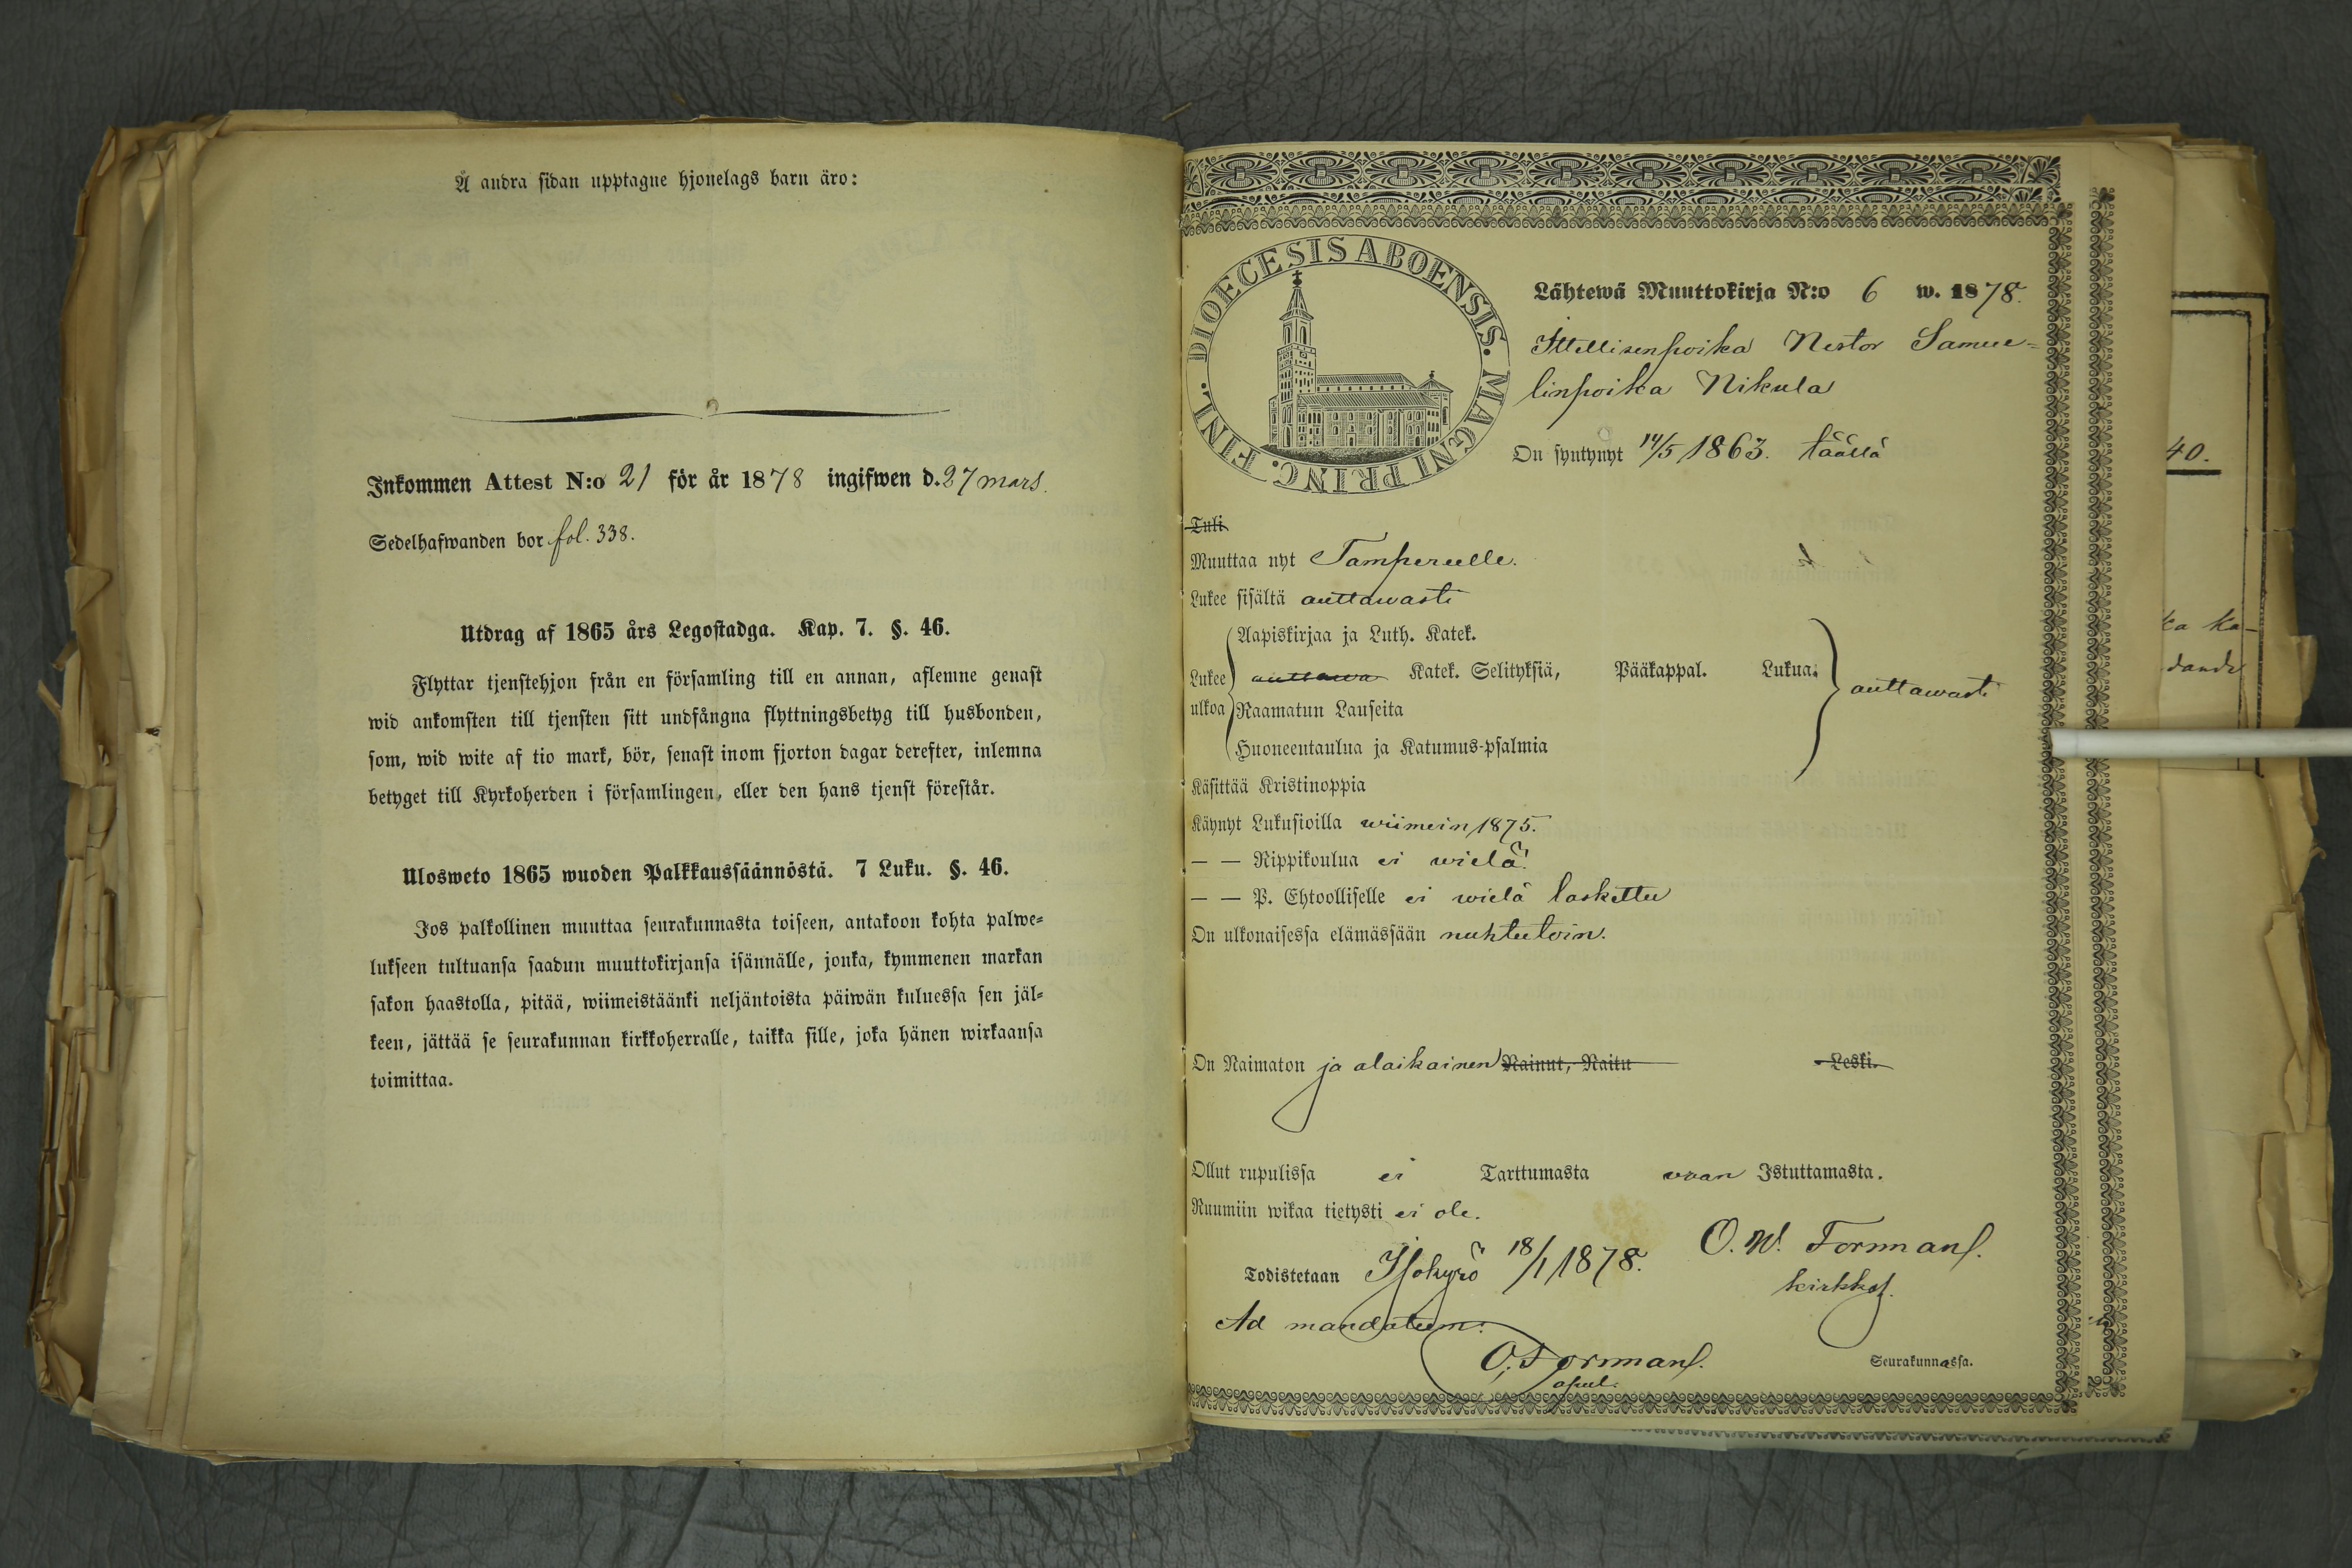 Å andra sidan upptagne hjonelags barn äro:
Inkommen Attest N:o 21 för år 1878 ingifwen d. 27 mars.
Sedelhafwanden bor fol. 338.
Utdrag af 1865 års Legostadga. Kap. 7. §. 46.
Flyttar tjenstehjon från en församling till en annan, aflemne genast
wid ankomsten till tjensten sitt undfångna flyttningsbetyg till husbonden,
som, wid wite af tio mark, bör, senast inom fjorton dagar derefter, inlemna
betyget till Kyrkoherden i församlingen, eller den hans tjenst förestår.
Ulosweto 1865 wuoden Palkkaussäännöstä. 7 Luku. §. 46.
Jos palkollinen muuttaa seurakunnasta toiseen, antakoon kohta palwe-
lukseen tultuansa saadun muuttokirjansa isännälle, jonka, kymmenen markan
sakon haastolla, pitää, wiimeistäänki neljäntoista päiwän kuluessa sen jäl-
keen, jättää se seurakunnan kirkkoherralle, taikka sille, joka hänen wirkaansa
toimittaa.
DIOECESIS ABOENSIS. MAGNI PRINC. FINL.
Lähtewä Muuttokirja N:o 6 w. 1878.
Ittellisenpoika Nestor Samue-
linpoika Nikula
On syntynyt 14/5 1863. täällä
Tuli
Muuttaa nyt Tampereelle.
Lukee sisältä auttawasti
Lukee ulkoa
Aapiskirjaa ja Luth. Katek.
auttawa Katek. Selityksiä, Pääkappal. Lukua.
Raamatun Lauseita
Huoneentaulua ja Katumus-psalmia
auttawasti
Käsittää Kristinoppia
Käynyt Lukusioilla wiimein 1875.
— — Rippikoulua ei wielä.
— — P. Ehtoolliselle ei wielä laskettu
On ulkonaisessa elämässään nuhteetoin.
On Naimaton ja alaikainen Nainut, Naitu Leski.
Ollut rupulissa ei Tarttumasta waan Istuttamasta.
Ruumiin wikaa tietysti ei ole.
Todistetaan Isokyrö 18/1 1878. O. W. Forsman.
kirkkoh.
Ad mandatum:
O. Forsman.
apul.
Seurakunnassa.
40.
ka ka-